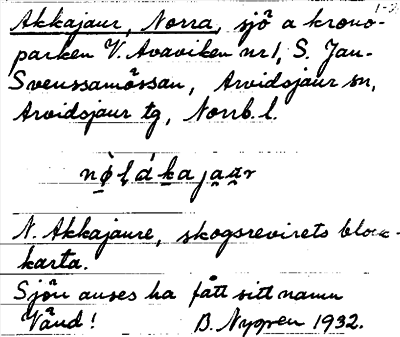 Akkajaur, Norra, sjö å krono-
parken V. Avaviken nr 1, S. Jan-
Svenssamössan, Arvidsjaur sn,
Arvidsjaur tg, Norrb. l.
N. Akkajaure, skogsrevirets block-
karta.
Sjön anses ha fått sitt namn
Vänd! B. Nygren 1932.